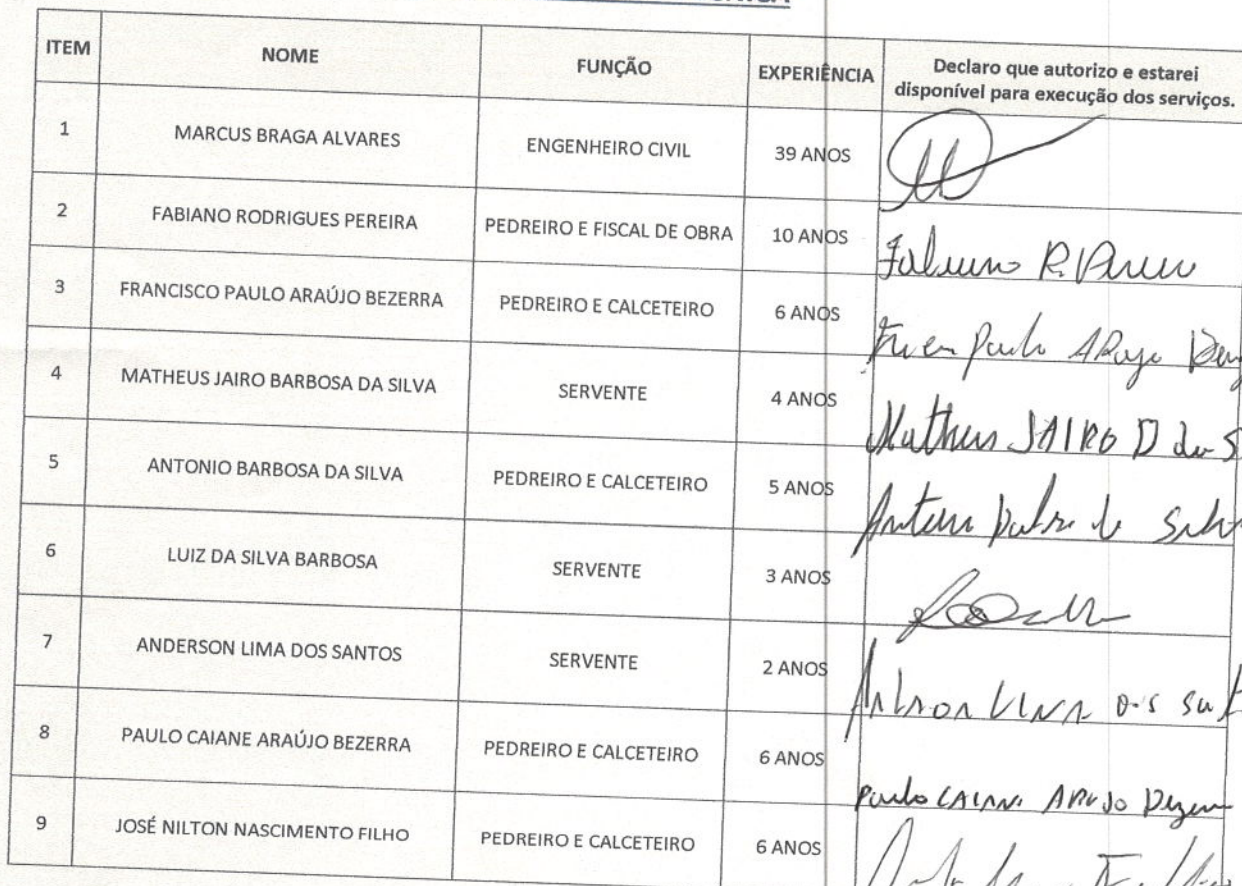 ITEM NOME FUNÇÃO EXPERIÊNCIA Declaro que autorizo e estarei
disponível para execução dos serviços.
1 MARCUS BRAGA ALVARES ENGENHEIRO CIVIL 39 ANOS
2 FABIANO RODRIGUES PEREIRA PEDREIRO E FISCAL DE OBRA 10 ANOS
3 FRANCISCO PAULO ARAÚJO BEZERRA PEDREIRO E CALCETEIRO 6 ANOS
4 MATHEUS JAIRO BARBOSA DA SILVA SERVENTE 4 ANOS
Matheus JAIRO
5 ANTONIO BARBOSA DA SILVA PEDREIRO E CALCETEIRO 5 ANOS
6 LUIZ DA SILVA BARBOSA SERVENTE 3 ANOS
7 ANDERSON LIMA DOS SANTOS SERVENTE 2 ANOS
8 PAULO CAIANE ARAÚJO BEZERRA PEDREIRO E CALCETEIRO 6 ANOS
Paulo
9 JOSÉ NILTON NASCIMENTO FILHO PEDREIRO E CALCETEIRO 6 ANOS